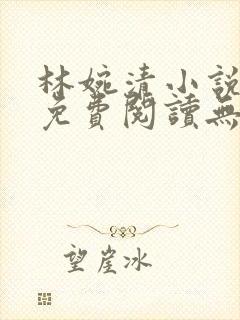 林婉清小說
免費閱讀無
望崖冰